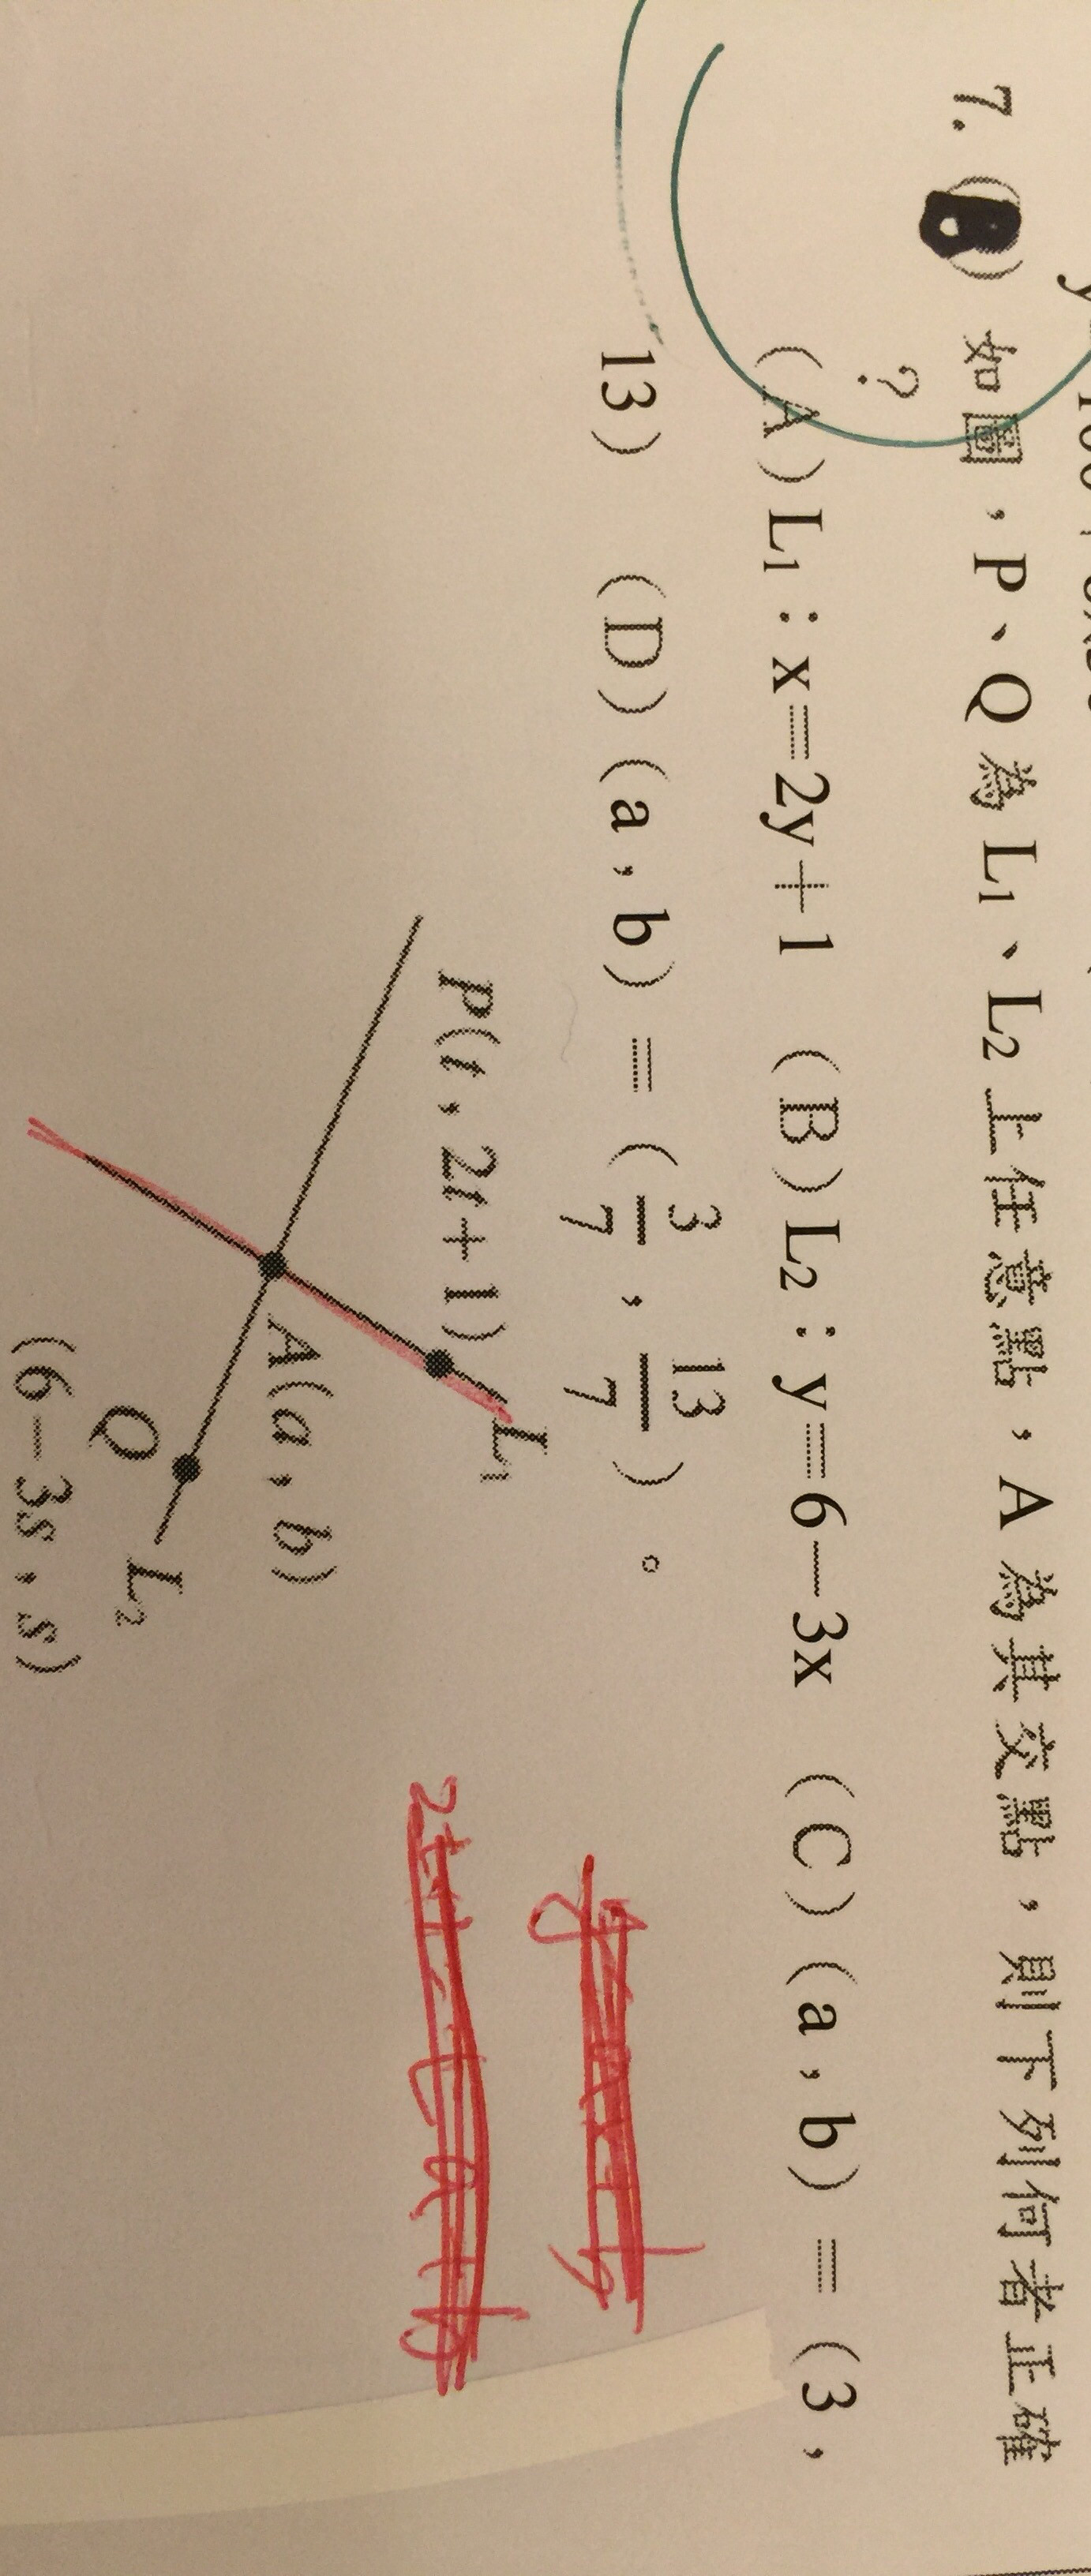 7. ( ) 如圖，P、Q 為 L₁、L₂ 上任意點，A 為其交點，則下列何者正確
？
(A) L₁：x＝2y＋1 (B) L₂：y＝6－3x (C) (a，b) ＝ (3，
13) (D) (a，b) ＝ (3/7，13/7)。
P(t，2t＋1)
L₁
A(a，b)
Q
L₂
(6－3s，s)